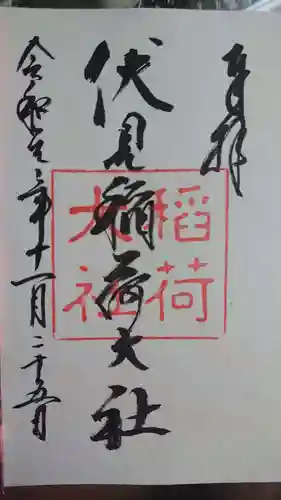 奉拝
伏見稲荷大社
稲荷大社
令和元年十一月二十五日